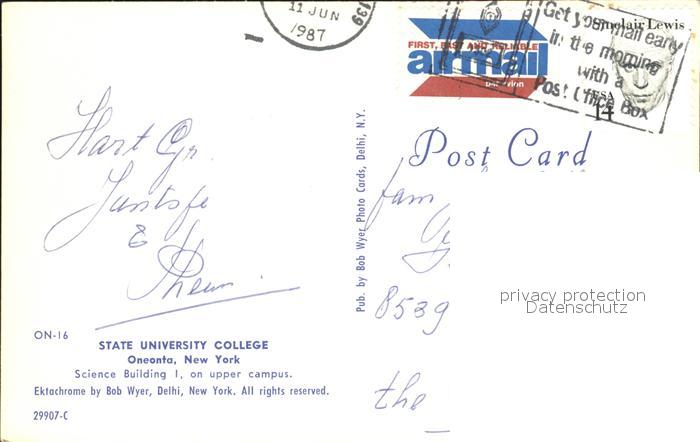 11 JUN
1987
139
FIRST, FAST AND RELIABLE
airmail
par avion
Get your mail early
in the morning
with a
Post Office Box
Sinclair Lewis
USA
14
Post Card
Hart Gr.
&
fam
8539
the
privacy protection
Datenschutz
Pub. by Bob Wyer Photo Cards, Delhi, N.Y.
ON-16
STATE UNIVERSITY COLLEGE
Oneonta, New York
Science Building I, on upper campus.
Ektachrome by Bob Wyer, Delhi, New York. All rights reserved.
29907-C